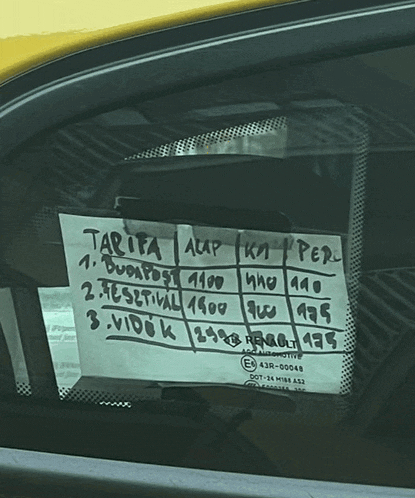 TARIFA ALAP KM PERC
1. BUDAPEST 1100 440 110
2. FESZTIVÁL 1900 700 175
3. VIDÉK 175
RENAULT
AUTOMOTIVE
E6 43R-00048
DOT-24 M188 AS2